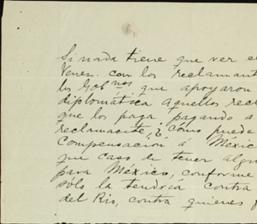 Si nada tiene que ver e
Venez. con los reclamant
los Gob.nos que apoyaron
diplomática aquellos recl
que los paga pagando a
reclamante, ¿Cómo puede
Compensación á Méxic
que caso de tener algu
para México, conforme
sólo la tendría contra
del Rio, contra quienes f